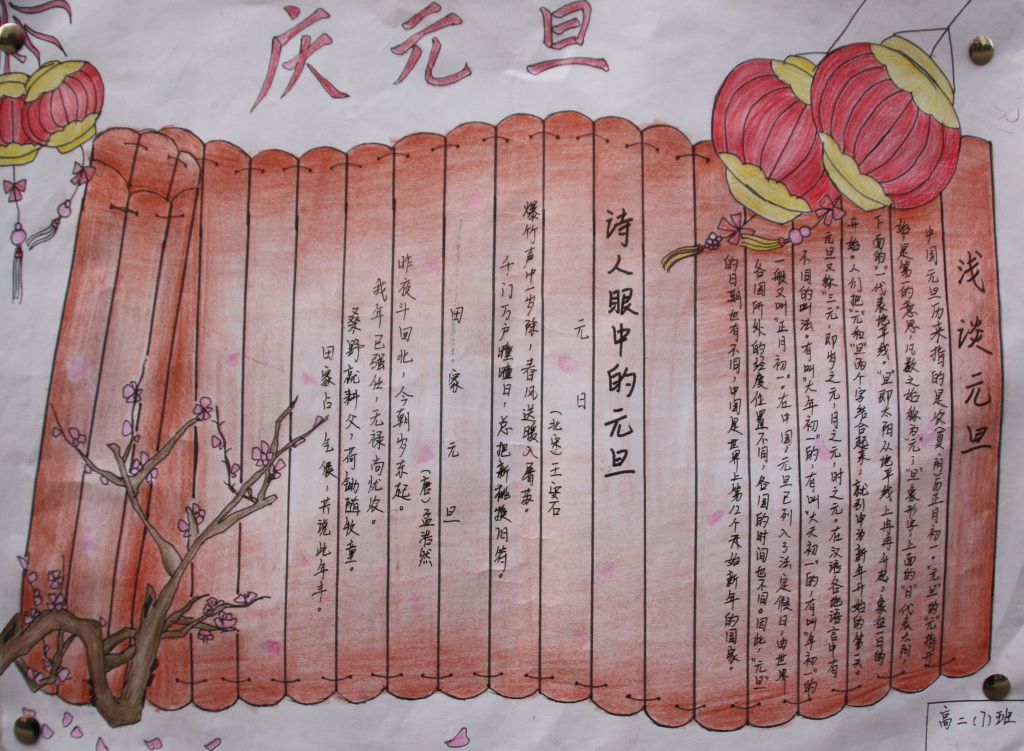 庆元旦
浅谈元旦
中国元旦历来指的是农(夏、阴)历正月初一。“元旦”的“元”指开
始，是第一的意思，凡数之始称为“元”；“旦”象形字，上面的“日”代表太阳，
下面的“一”代表地平线。“旦”即太阳从地平线上冉冉升起，象征一日的
开始。人们把“元”和“旦”两个字结合起来，就引申为新年开始的第一天。
元旦又称“三元”，即岁之元，月之元，时之元。在汉语各地语言中有
不同的叫法，有叫“大年初一”的，有叫“大天初一”的，有叫“年初一”的，
一般又叫“正月初一”。在中国，元旦已列入了法定假日，由世界
各国所处的经度位置不同，各国的时间也不同。因此，“元旦”
的日期也有不同，中国是世界上第12个开始新年的国家。
诗人眼中的元旦
元日
(北宋)王安石
爆竹声中一岁除，春风送暖入屠苏。
千门万户曈曈日，总把新桃换旧符。
田家元旦
(唐)孟浩然
昨夜斗回北，今朝岁东起。
我年已强仕，无禄尚忧农。
桑野就耕父，荷锄随牧童。
田家占气候，共说此年丰。
高二(7)班